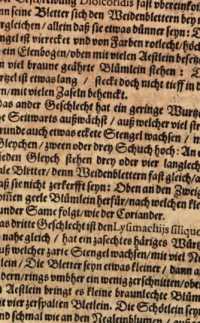 Beschreibung Dioscoridis fast vbereinkom
seine Bletter sich den Weidenblettern bey n
ergleichen / allein daß sie etwas dünner seyn: D
engel ist viereckt vnd von Farben rotlecht / höch
ein Elenbogen / oben mit vielen Aestlein besetzt
en viel braune geährer Blümlein stehen: D
rtzel ist etwas lang / steckt doch nicht tieff in d
n / mit vielen Zaseln behenckt.
das ander Geschlecht hat ein geringe Wurtze
e Seitwarts außwächst / auß welcher viel stren
runde auch etwas eckete Stengel wachsen / n
Gleychen / zween oder drey Schuch hoch: An e
jeden Gleych stehen drey oder vier langlech
ale Bletter / denn Weidenblettern fast gleich / a
aß sie nicht zerkerfft seyn: Oben an den Zweig
geele Blümlein herfür / nach welchen kle
under Same folgt / wie der Coriander.
as dritte Geschlecht ist den Lysimachijs siliquo
nahe gleich / hat ein fasechtes häriges Würt
uß welcher zarte Stengel wachsen / mit viel N
lein: Die Bletter seyn etwas kleiner / dann a
dern / rings vmbher ein wenig zerschnitten / obe
n Aestlein bringt es kleine braunlechte Blüml
it vier zerspalten Bletlein. Die Schötlein seyn
nd schmal wie an den Negelnblumen / auß